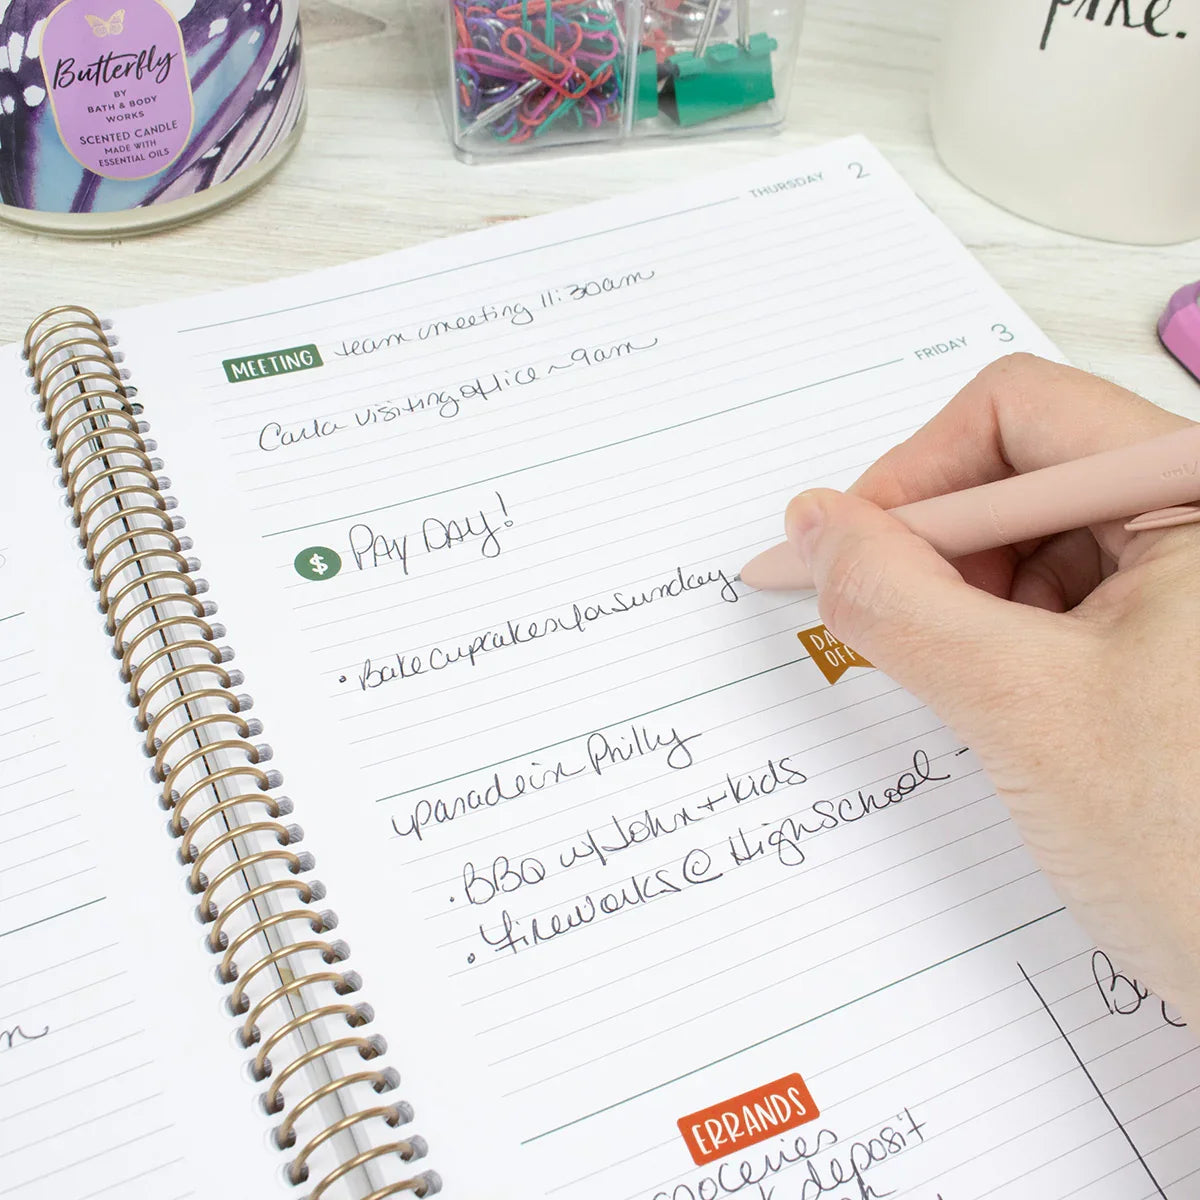 Butterfly
BY
BATH & BODY
WORKS
SCENTED CANDLE
MADE WITH
ESSENTIAL OILS
THURSDAY 2
MEETING team meeting 11:30am
Carla visiting office ~ 9am
FRIDAY 3
$ PAY DAY!
• Bake cupcakes for Sunday
parade in Philly
• BBQ w/ John + kids
• fireworks @ High School -
ERRANDS
deposit